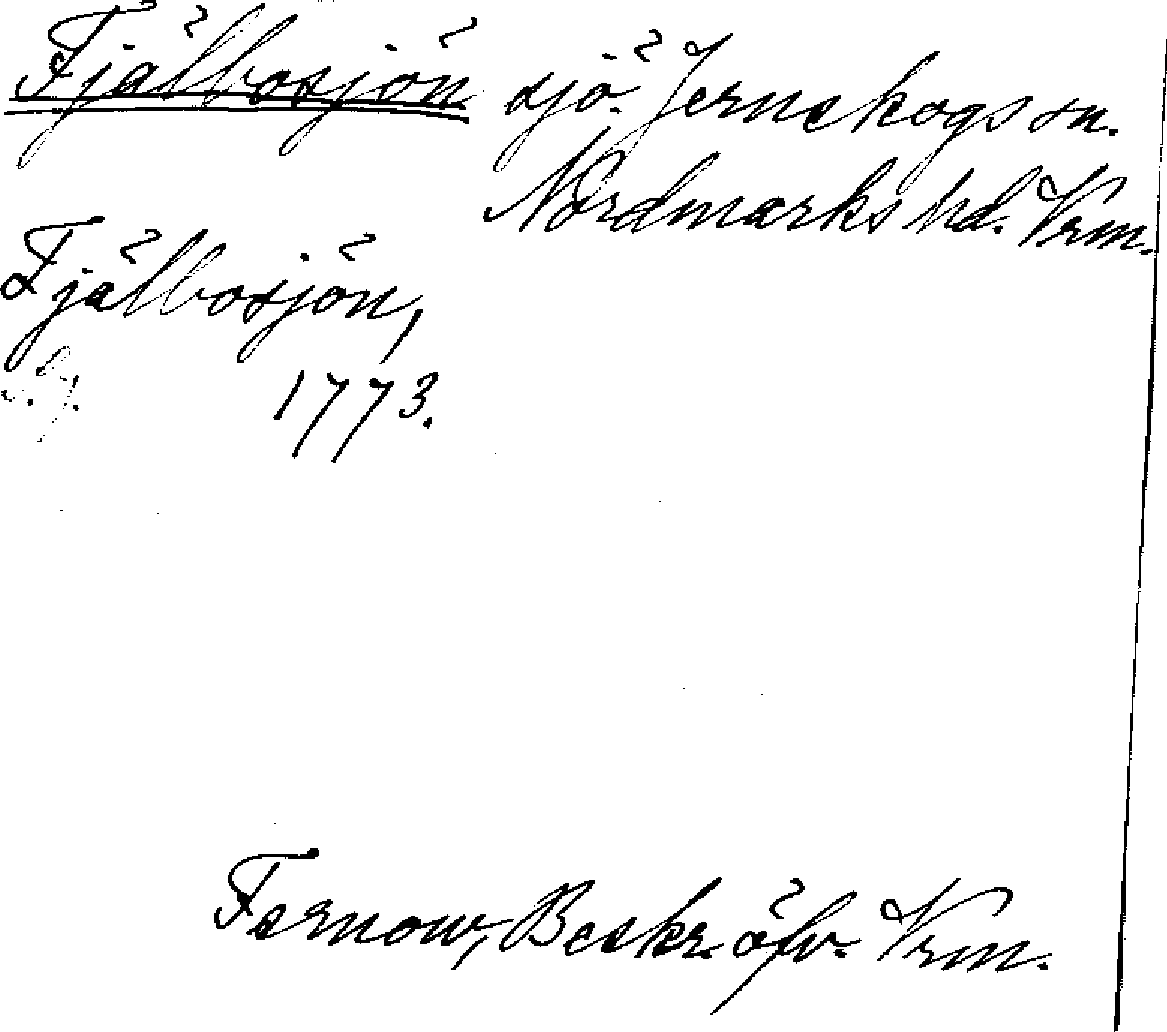 Fjälbosjön sjö. Jernskogs sn.
Nordmarks hd. Vrm.
Fjälbosjön,
1773.
Fernow, Beskr. öfv. Vrm.